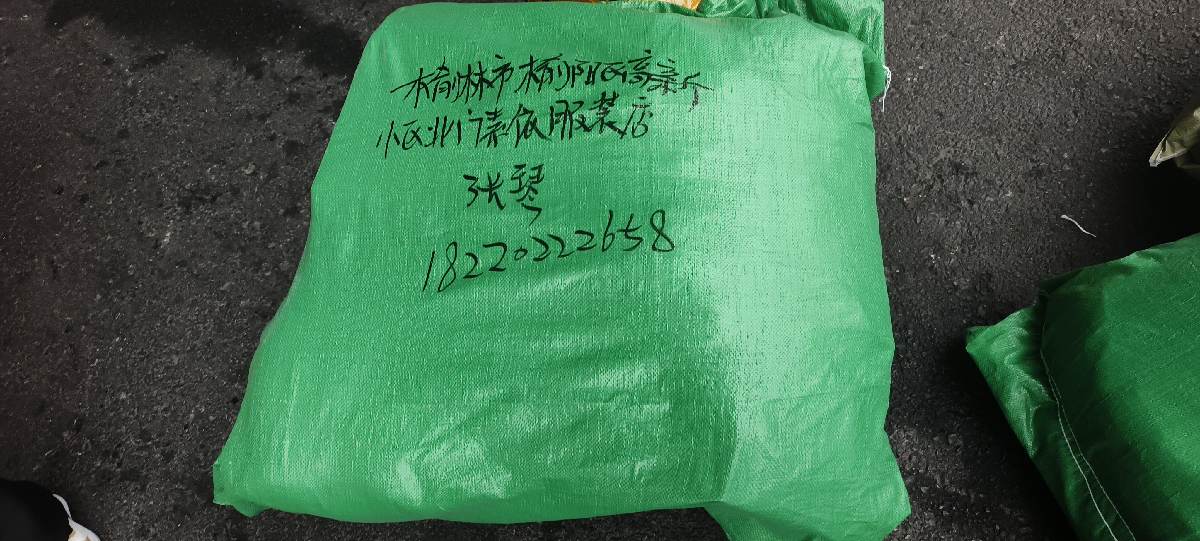 榆林市榆阳区高新
小区北门素依服装店
张琴
18220222658